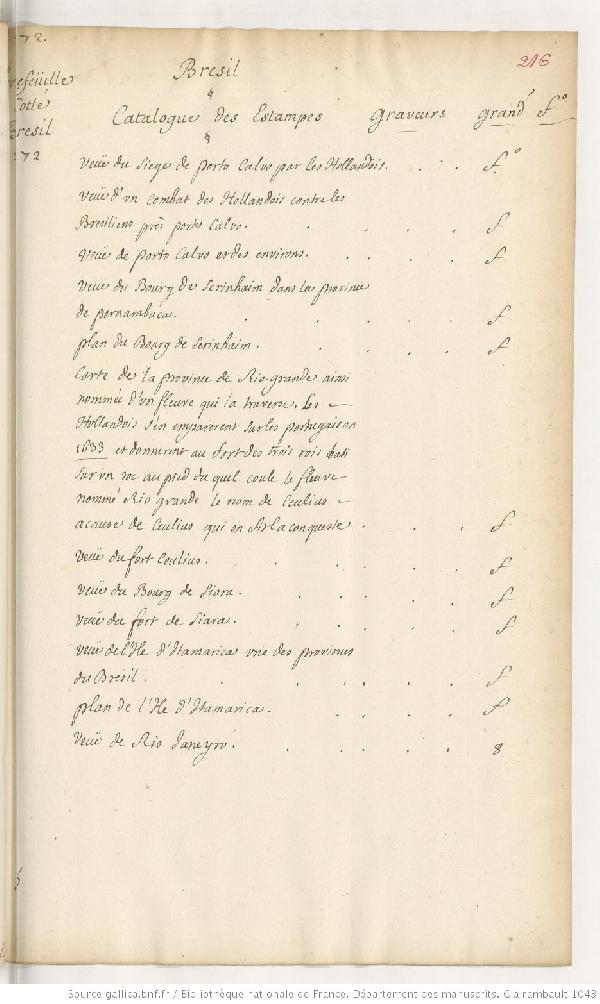 172.
216
Bresil
Catalogue des Estampes Graveurs grand fº
Bresil
172
Veüe du Siege de Porto Calvo par les Hollandois. fº
Veüe d'un Combat des Hollandois contre les
Bresiliens près porto Calvo. f
Veüe de Porto Calvo et des environs. f
Veüe du Bourg de Serinhaim dans la province
de pernambuca. f
plan du Bourg de Serinhaim. f
Carte de la province de Rio-grande ainsi
nommée d'un fleuve qui la traverse. Les
Hollandois s'en emparerent sur les portugais en
1633 et donnerent au fort des trois rois bati
sur un roc au pied du quel coule le fleuve
nommé Rio grande le nom de Ceulius
acause de Ceulius qui en fit la conqueste. f
Veüe du fort Ceulius. f
Veüe du Bourg de Siara. f
Veüe du fort de Siara. f
Veüe de l'Ile d'Itamarica une des provinces
du Bresil. f
plan de l'Ile d'Itamarica. f
Veüe de Rio Janeyro. 8
Source gallica.bnf.fr / Bibliothèque nationale de France. Département des manuscrits. Clairambault 1048